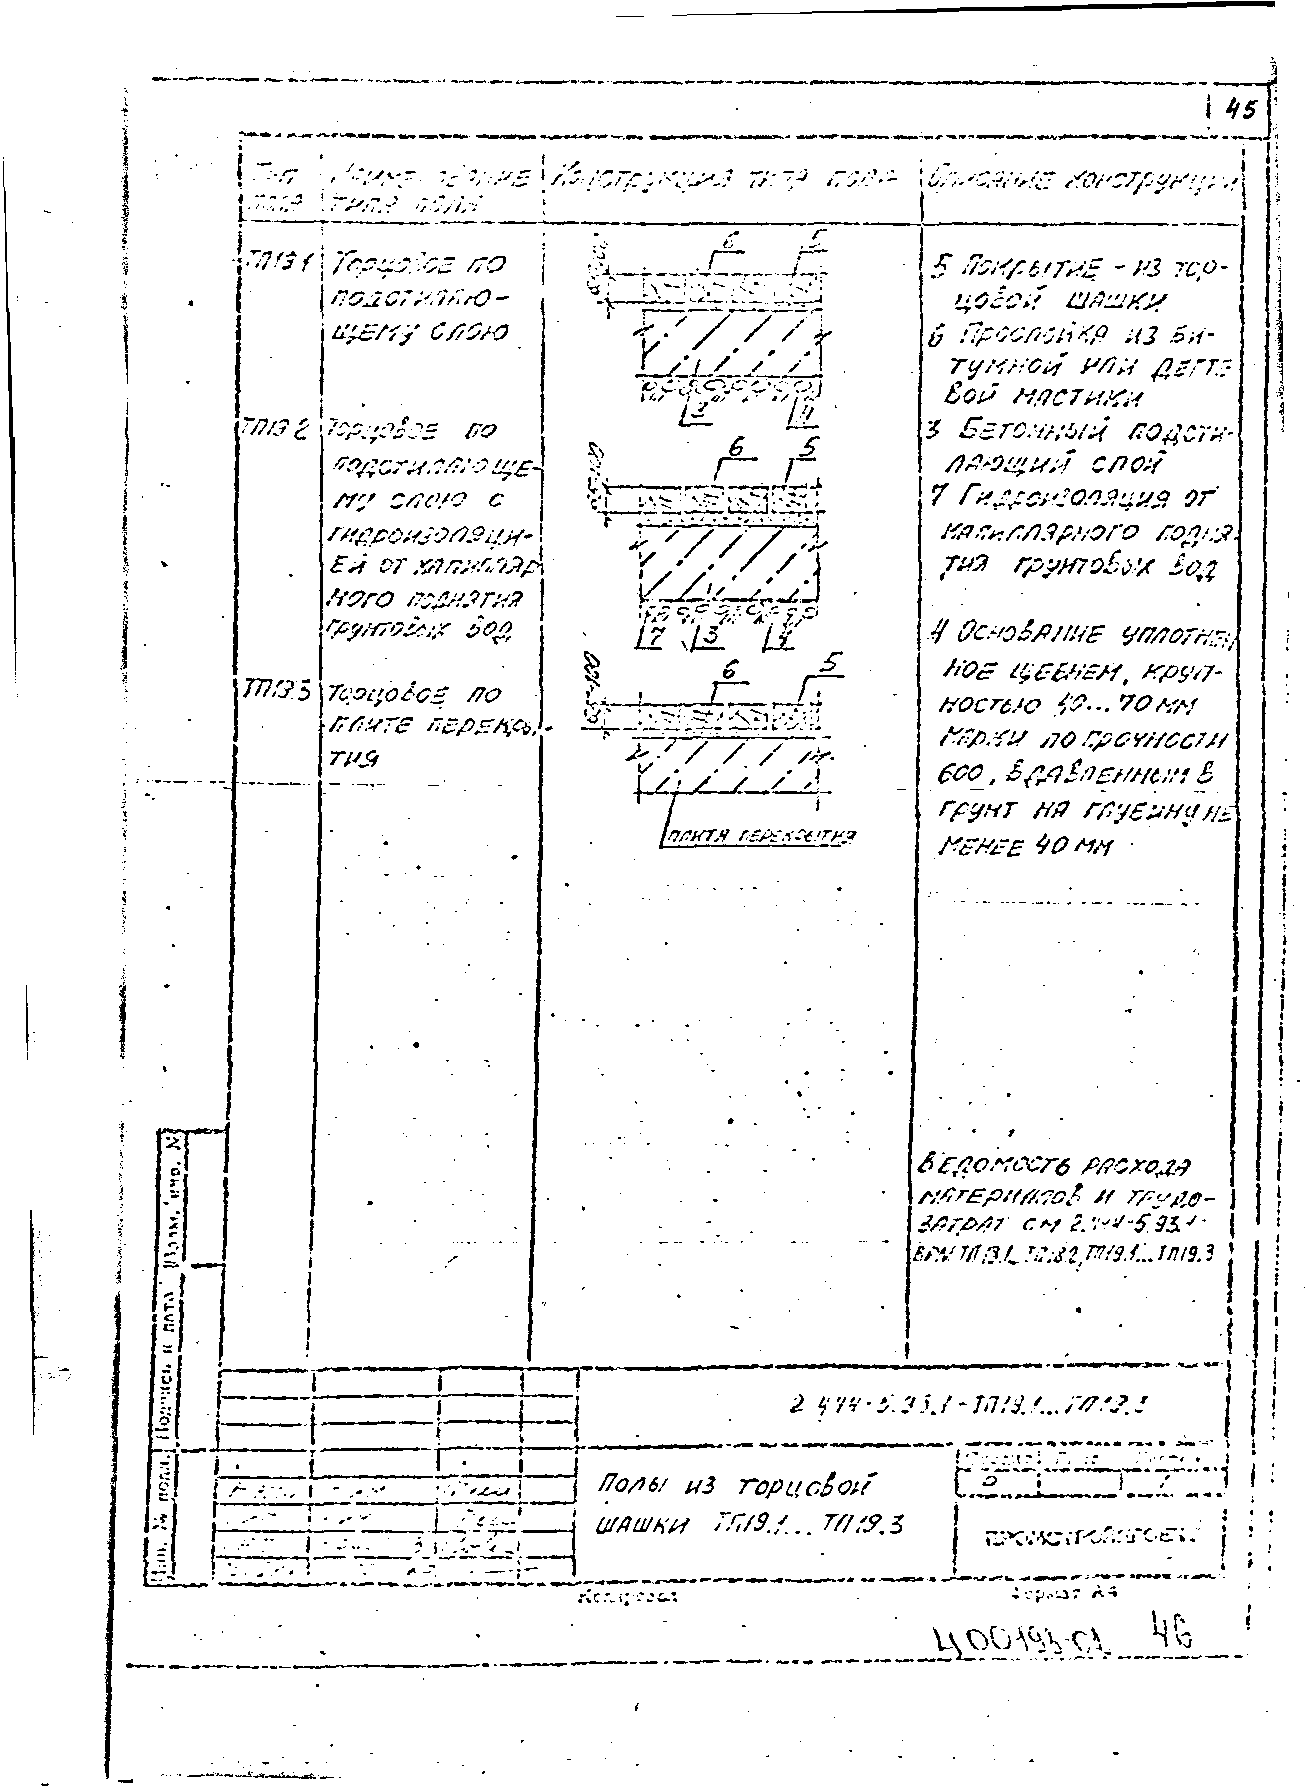 45
Тип
пола
Наименование
типа пола
Конструкция типа пола
Описание конструкции
ТП19.1
Торцовое по
подстилаю-
щему слою
6 5
3 4
5 Покрытие - из тор-
цовой шашки
6 Прослойка из би-
тумной или дегте
вой мастики
3 Бетонный подсти-
лающий слой
7 Гидроизоляция от
капиллярного подня-
тия грунтовых вод
4 Основание уплотнен
ное щебнем, круп-
ностью 40...70 мм
марки по прочности
600, вдавленным в
грунт на глубину не
менее 40 мм
ТП19.2
Торцовое по
подстилающе-
му слою с
гидроизоляци-
ей от капилляр
ного поднятия
грунтовых вод
6 5
7 3 4
ТП19.3
Торцовое по
плите перекры-
тия
6 5
плита перекрытия
Ведомость расхода
материалов и трудо-
затрат см 2.444-5.93.1-
ТП19.1...ТП19.3
Взам. инв. №
Подпись и дата
Инв. № подл.
2.444-5.93.1-ТП19.1...ТП19.3
Полы из торцовой
шашки ТП19.1...ТП19.3
Р 1
ПРОМСТРОЙПРОЕКТ
Копировал
Формат А4
Ц00193-01 46